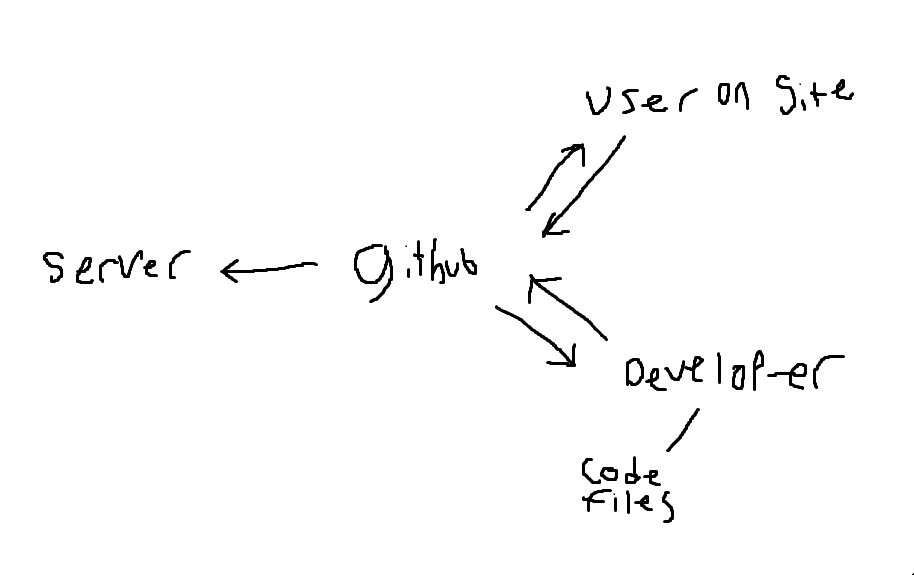 User on Site
server
Github
Developer
Code
Files